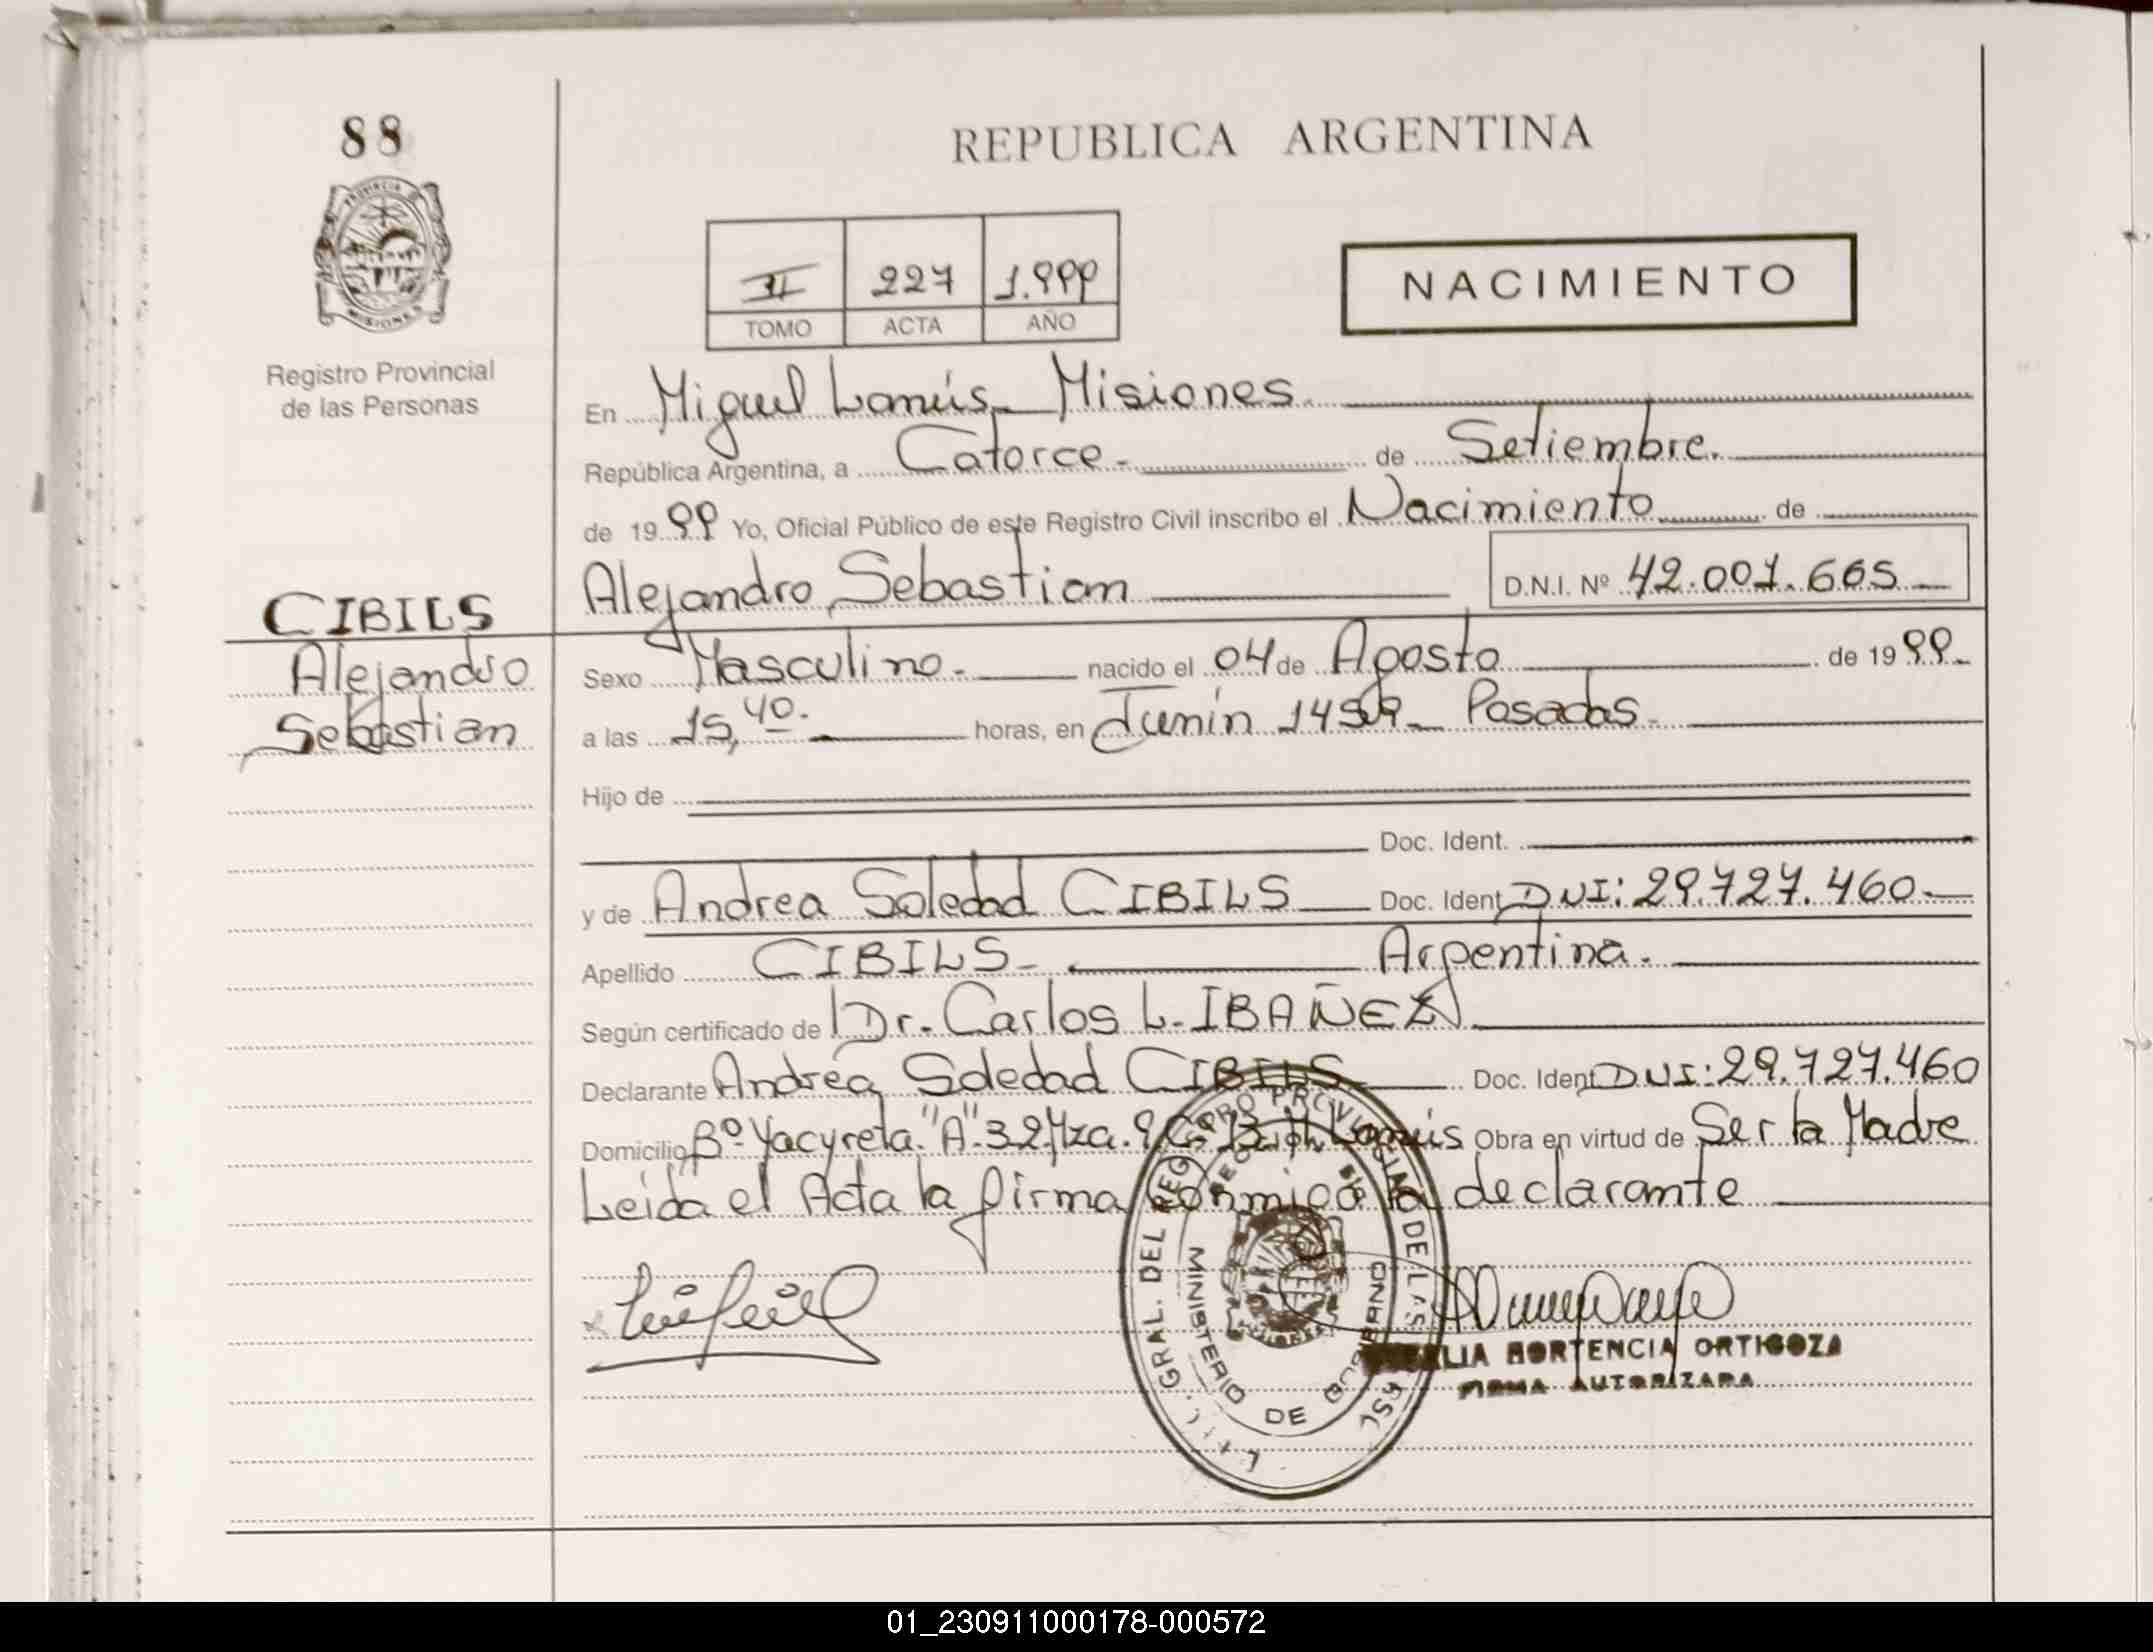 88
REPUBLICA ARGENTINA
PROVINCIA DE
MISIONES
Registro Provincial
de las Personas
II 227 1.999
TOMO ACTA AÑO
NACIMIENTO
En Miguel Lanús - Misiones.
República Argentina, a Catorce - de Setiembre.
de 1999 Yo, Oficial Público de este Registro Civil inscribo el Nacimiento de
CIBILS
Alejandro Sebastian
Alejandro Sebastian D.N.I. Nº 42.001.665
Sexo Masculino. nacido el 04 de Agosto de 1999.
a las 15,40. horas, en Junin Posadas.
Hijo de
Doc. Ident.
y de Andrea Soledad CIBILS Doc. Ident. DNI: 29.727.460.
Apellido CIBILS - Argentina.
Según certificado de Dr. Carlos L. IBAÑEZ
Declarante Andrea Soledad CIBILS Doc. Ident. DNI: 29.727.460
Domicilio Bº Yacyreta "A" 32 Mza. Lanús Obra en virtud de Ser la Madre
Leída el Acta la firma conmigo la declarante
GRAL. DEL REGISTRO PROVINCIAL DE LAS
MINISTERIO DE GOBIERNO
HORTENCIA ORTIGOZA
FIRMA AUTORIZADA
01_230911000178-000572